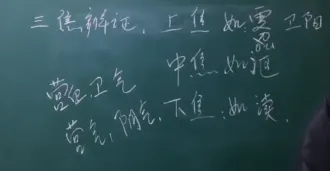 三焦辩证、上焦如雾 卫阳
中焦如沤
营卫气
营气、阴气、下焦:如渎.